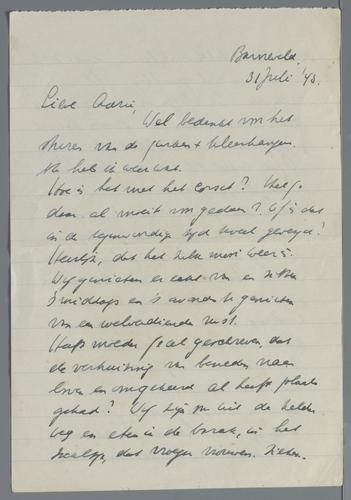 Barneveld,
31 Juli '43.
Lieve Adrie,
Wel bedankt voor het
sturen van de garen + kleerhangers.
Nu heb ik weer wat.
Hoe is het met het corset? Heb je
daar al moeite voor gedaan? Of is dat
in de tegenwoordige tijd teveel gevergd?
Heerlijk, dat het zulk mooi weer is.
Wij genieten er echt van en zitten
's middags en 's avonds te genieten
van een welverdiende rust.
Heeft moeder je al geschreven dat
de verhuizing van beneden naar
boven en omgekeerd al heeft plaats
gehad? Wij zijn nu uit de kelder
weg en eten in de barak, in het
zaaltje, dat vroeger vrouwen zieken